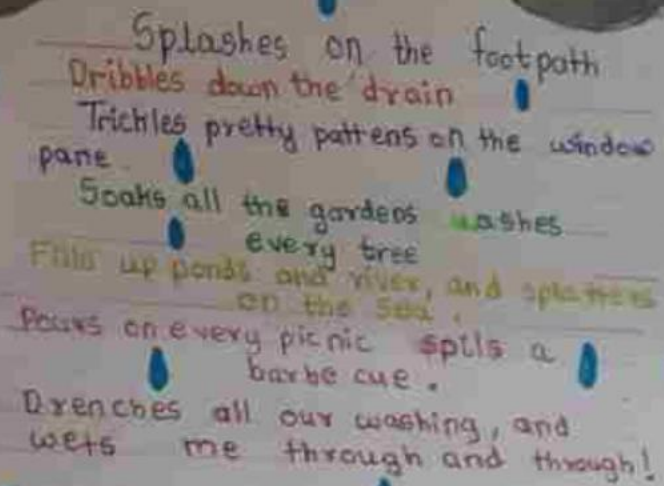 Splashes on the footpath
Dribbles down the drain
Trickles pretty pattens on the window
pane
Soaks all the gardens washes
every tree
Fills up ponds and river, and splatters
on the sea.
Pours on every picnic spils a
barbe cue.
Drenches all our washing, and
wets me through and through!